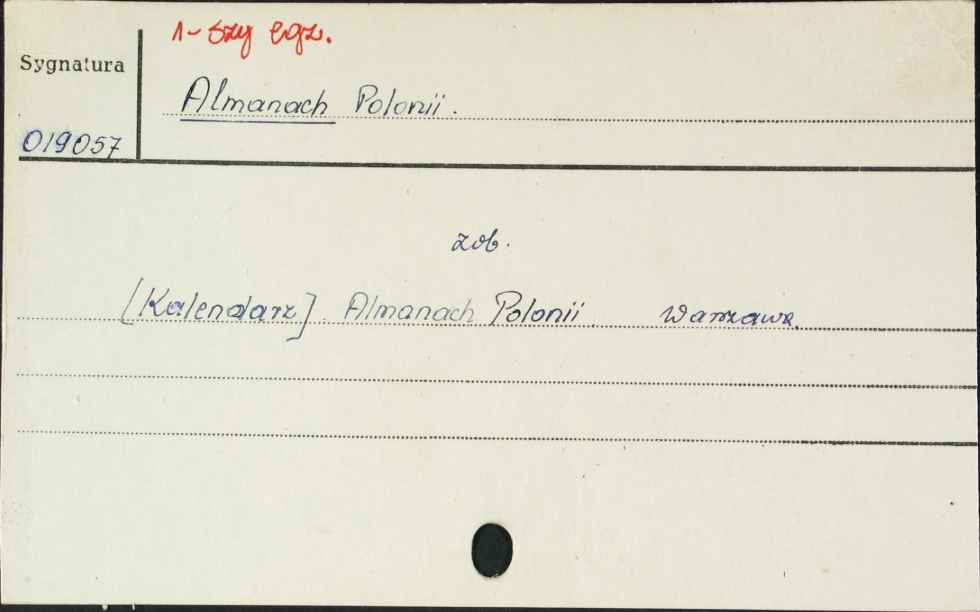 1-szy egz.
Sygnatura
Almanach Polonii.
019057
zob.
[Kalendarz] Almanach Polonii. Warszawa.